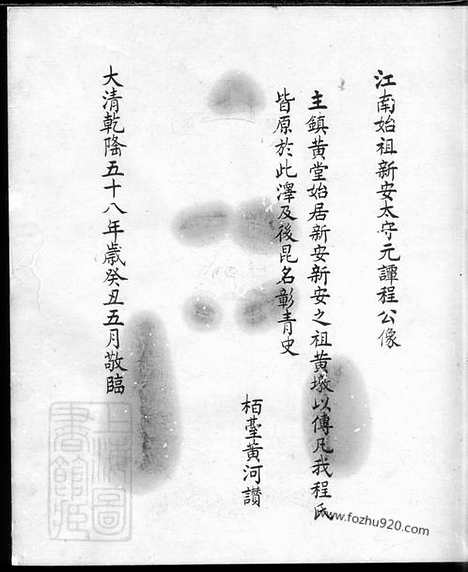 江南始祖新安太守元譚程公像
主鎮黃堂始居新安新安之祖黃墩以傳凡我程氏
皆原於此澤及後昆名彰青史
栢臺黃河讃
大清乾隆五十八年歲癸丑五月敬臨
上海圖
書館藏
www.fozhu920.com